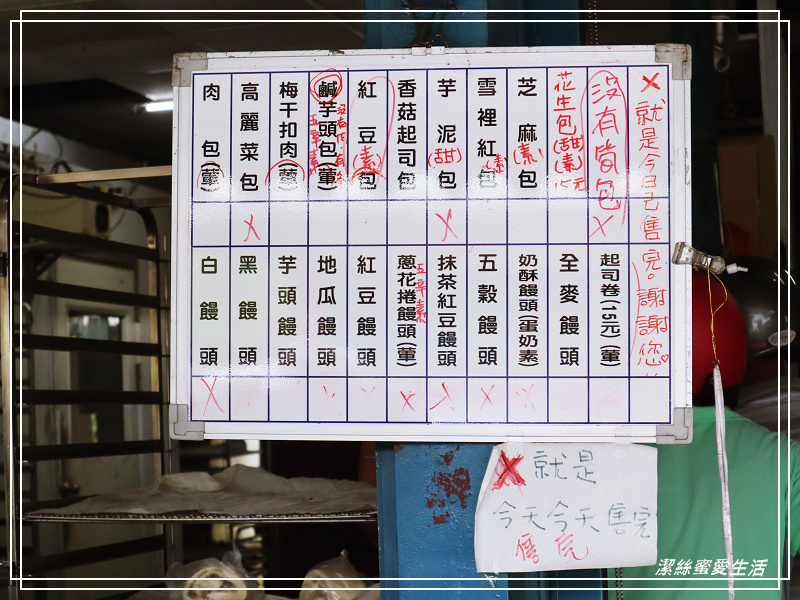 肉包(葷)
高麗菜包
梅干扣肉(葷)
鹹芋頭包(葷)
五辛素
紅豆(素)包
香菇起司包
芋泥(甜)包
雪裡紅包(素)
芝麻(素)包
花生包(甜)(素)15元
没有皆包
X就是今日已售完。謝謝您
X
X
X
白饅頭
黑饅頭
芋頭饅頭
地瓜饅頭
紅豆饅頭
蔥花捲饅頭(葷)
五辛素
抹茶紅豆饅頭
五穀饅頭
奶酥饅頭(蛋奶素)
全麥饅頭
起司卷(15元)(葷)
X
X
X
X
X就是
今天今天售完
售完
潔絲蜜愛生活